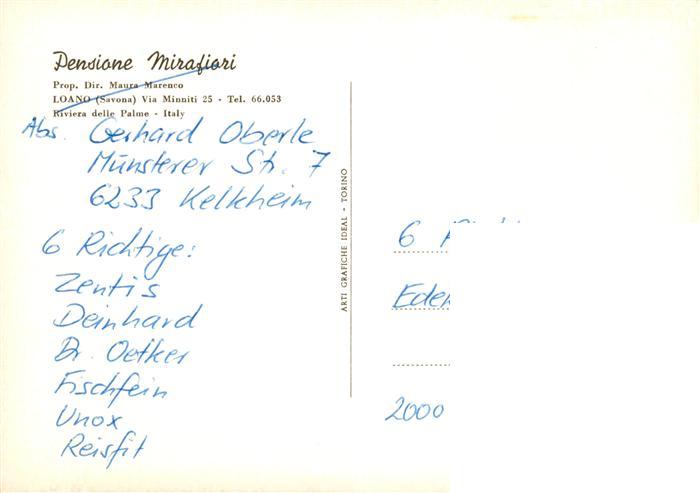 Pensione Mirafiori
Prop. Dir. Maura Marenco
LOANO (Savona) Via Minniti 25 - Tel. 66.053
Riviera delle Palme - Italy
Abs. Gerhard Oberle
Münsterer Str. 7
6233 Kelkheim
6 Richtige:
Zentis
Deinhard
Dr. Oetker
Fischfein
Unox
Reisfit
ARTI GRAFICHE IDEAL - TORINO
6
Edek
2000